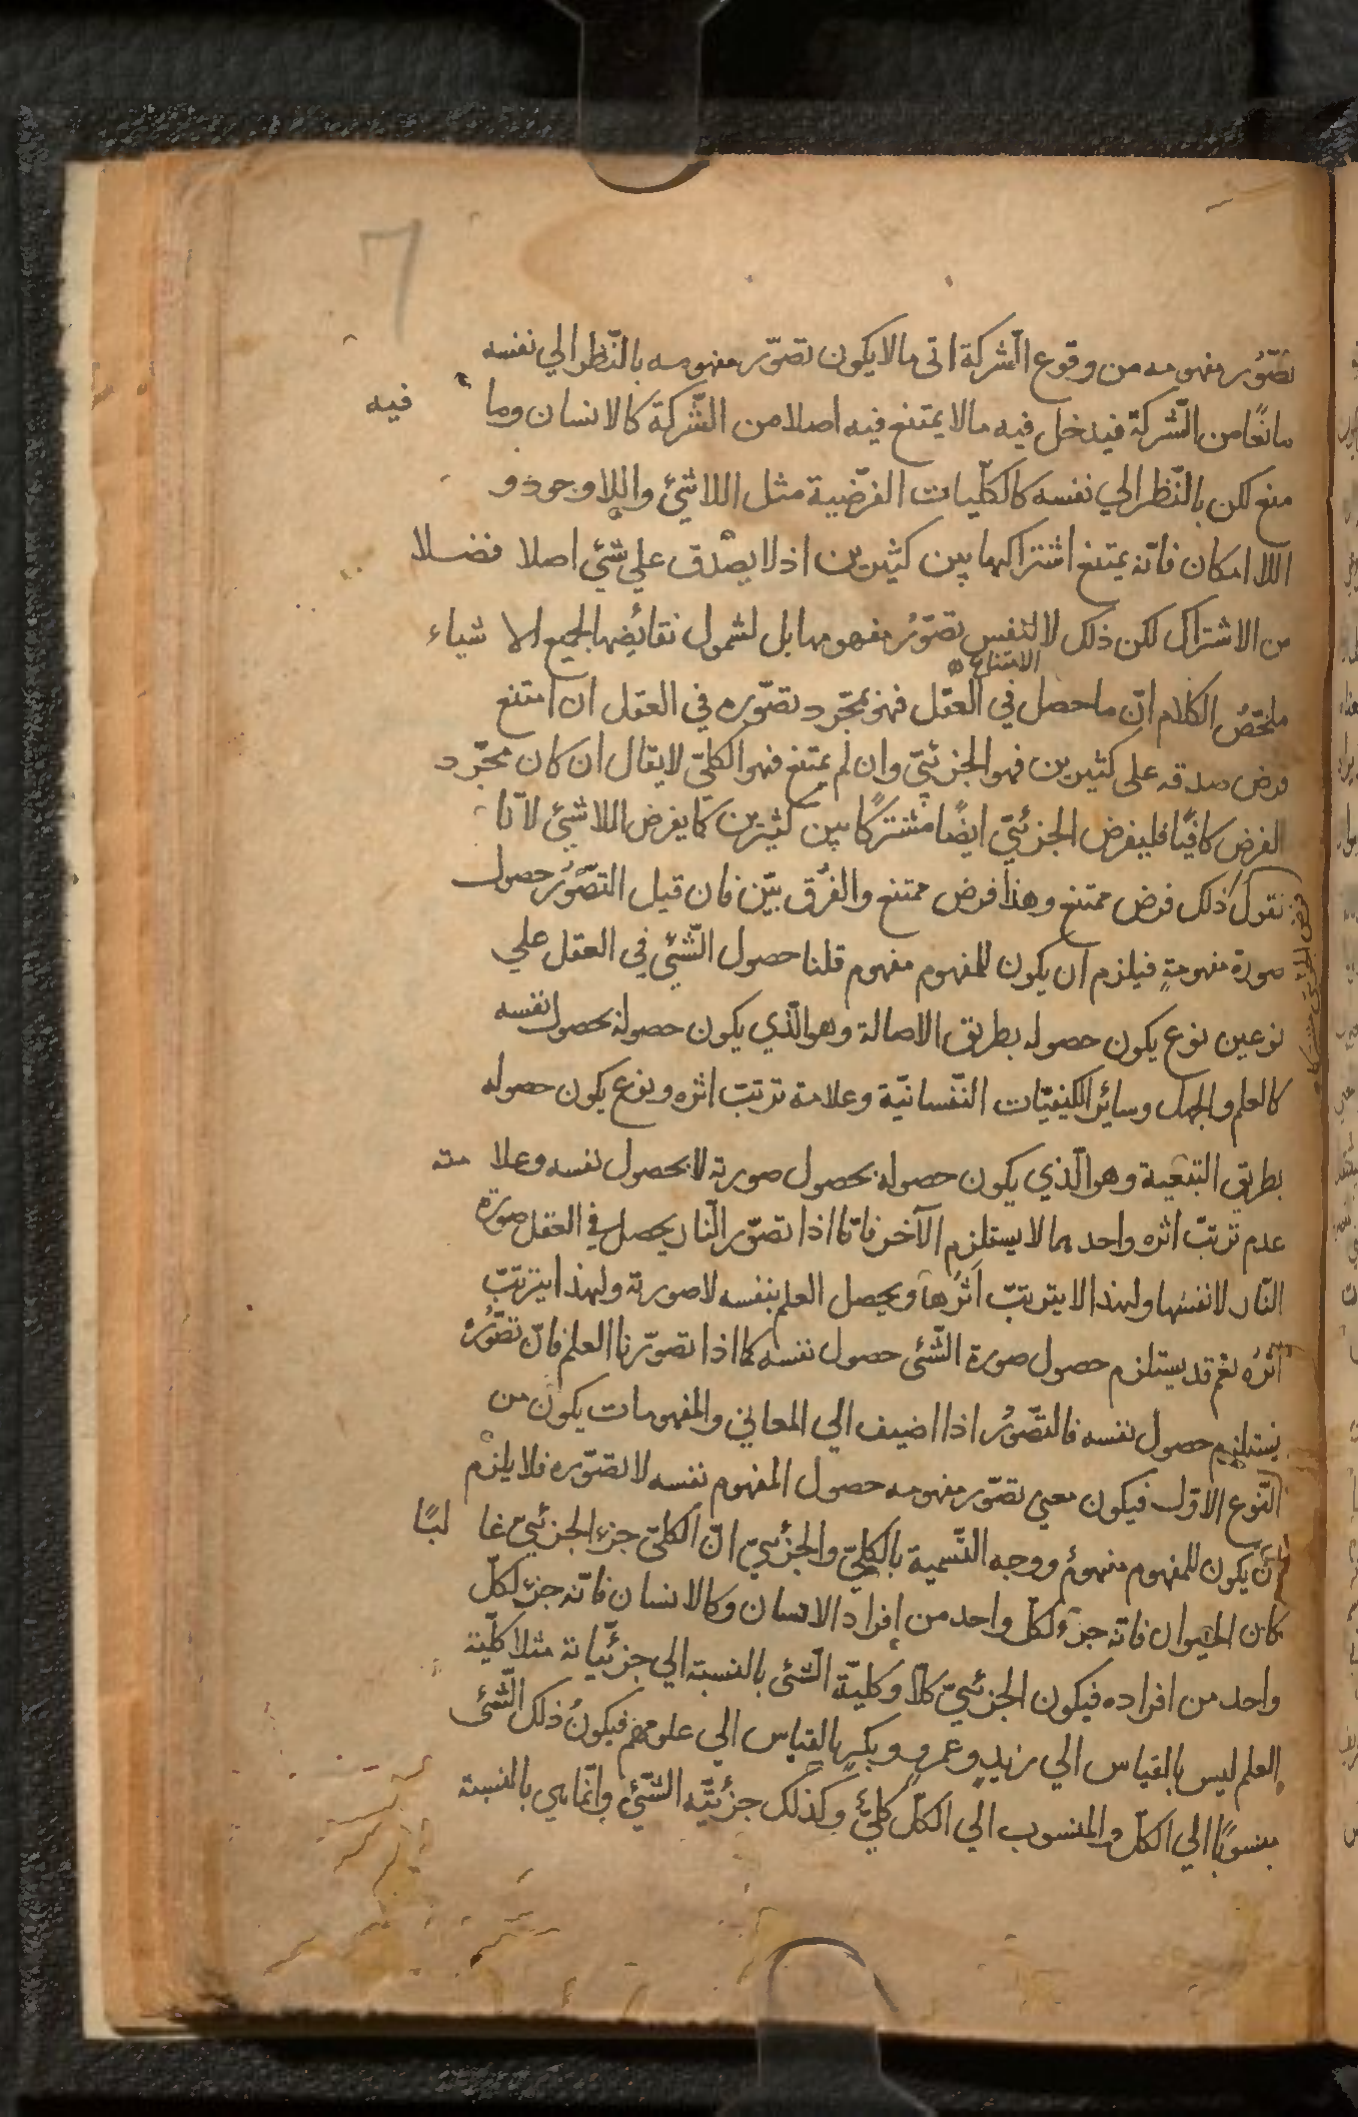 ٦
تصوّر مفهومه من وقوع الشّركة اتى مالايكون تصوّر مفهومه بالنّظر الي نفسه
مانعًا من الشّركة فيدخل فيه مالا يمتنع فيه اصلا من الشّركة كالانسان وما فيه
منع لكن بالنّظر الي نفسه كالكلّيات الفرضّية مثل اللاشئ واللاوجود و
اللا امكان فانّه يمتنع اشتراكها بين كثيرين اذ لا يصدق علي شئي اصلا فضلا
من الاشتراك لكن ذلك لا لنفس تصوّر مفهومها بل لشمول نقائضها لجميع الاشياء
الامتناع
ملخّصُ الكلام انّ ما حصل في العقل فهو بمجّرد تصوّره في العقل ان امتنع
فرض صدقه على كثيرين فهو الجزئيّ وان لم يمتنع فهو الكليّ لايقال ان كان مجّرد
الفرض كافيًا فليفرض الجزئيّ ايضًا مشتركًا بين كثيرين كما يفرض اللاشئي لانّا
نقول ذلك فرض ممتنع وهذا فرض ممتنع والفرق بيّن فان قيل التصّوُر حصول
صورة مفهومةٍ فيلزم ان يكون للمفهوم مفهوم قلنا حصول الشّئي في العقل علي
نوعين نوع يكون حصوله بطريق الاصالة وهو الّذي يكون حصوله بحصول نفسه
كالعلم والجهل وسائر الكيفيّات النّفسانيّة وعلامة ترتبّ اثره ونوع يكون حصوله
بطريق التبعّية وهو الّذي يكون حصوله بحصول صورته لا بحصول نفسه وعلامته
عدم ترتبّ اثره واحدهما لا يستلزم الآخر فانّا اذا تصوّر النّار يحصل في العقل صورة
النّار لا نفسها ولهذا لا يترتبّ اثرُها ويحصل العلم بنفسه لا صورته ولهذا يترتبّ
اثرُه نعم قد يستلزم حصول صورة الشّئ حصول نفسه كما اذا تصوّرنا العلم فانّ تصّوُره
يستلزم حصول نفسه فالتصّوُر اذا اضيف الي المعاني والمفهومات يكون من
النّوع الاوّل فيكون معني تصوّر مفهومه حصول المفهوم نفسه لا تصوّره فلا يلزم
ان يكون للمفهوم مفهومٌ ووجه التّسمية بالكليّ والجزئيّ انّ الكليّ جزء الجزئيّ غالبًا
كان الحيوان فانّه جزء لكلّ واحد من افراد الانسان وكالانسان فانّه جزء لكلّ
واحد من افراده فيكون الجزئيّ كلّا وكليّة الشّئ بالنسبة الي جزئيّاته مثلا كليّة
العلم ليس بالقياس الي زيدٍ وعمرٍو وبكرٍ بالقياس الي علومهم فيكونُ ذلك الشّئ
منسوبًا الي الكلّ والمنسوب الي الكلّ كليّ وكذلك جزئيّة الشّئ وانّما هي بالنسبة
فرض الجزئي مشتركا